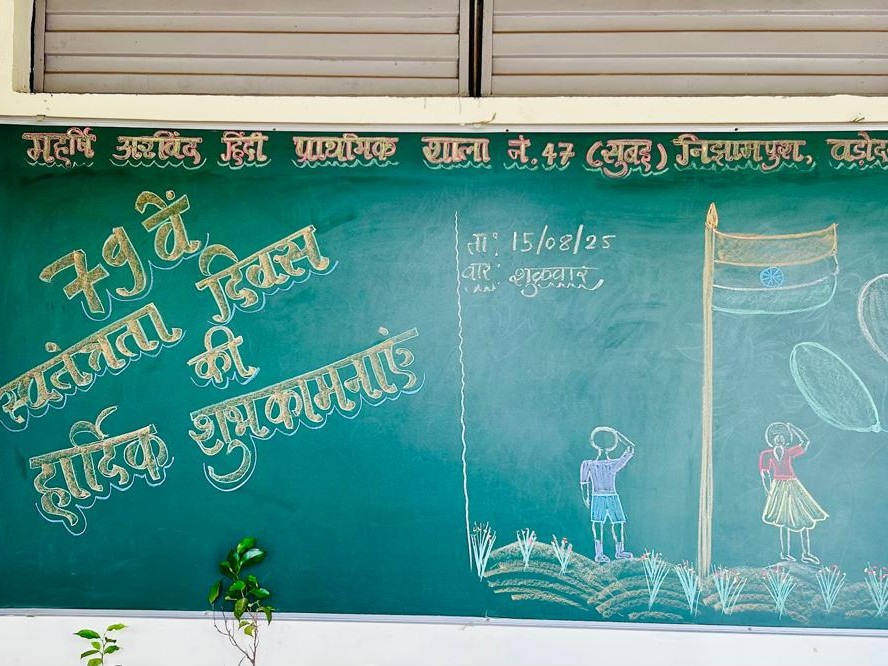 महर्षि अरविंद हिंदी प्राथमिक शाला नं. 47 (सुबह) निझामपुरा,
79 वें
स्वतंत्रता दिवस
की
हार्दिक शुभकामनाएं
ता: 15/08/25
वार: शुक्रवार